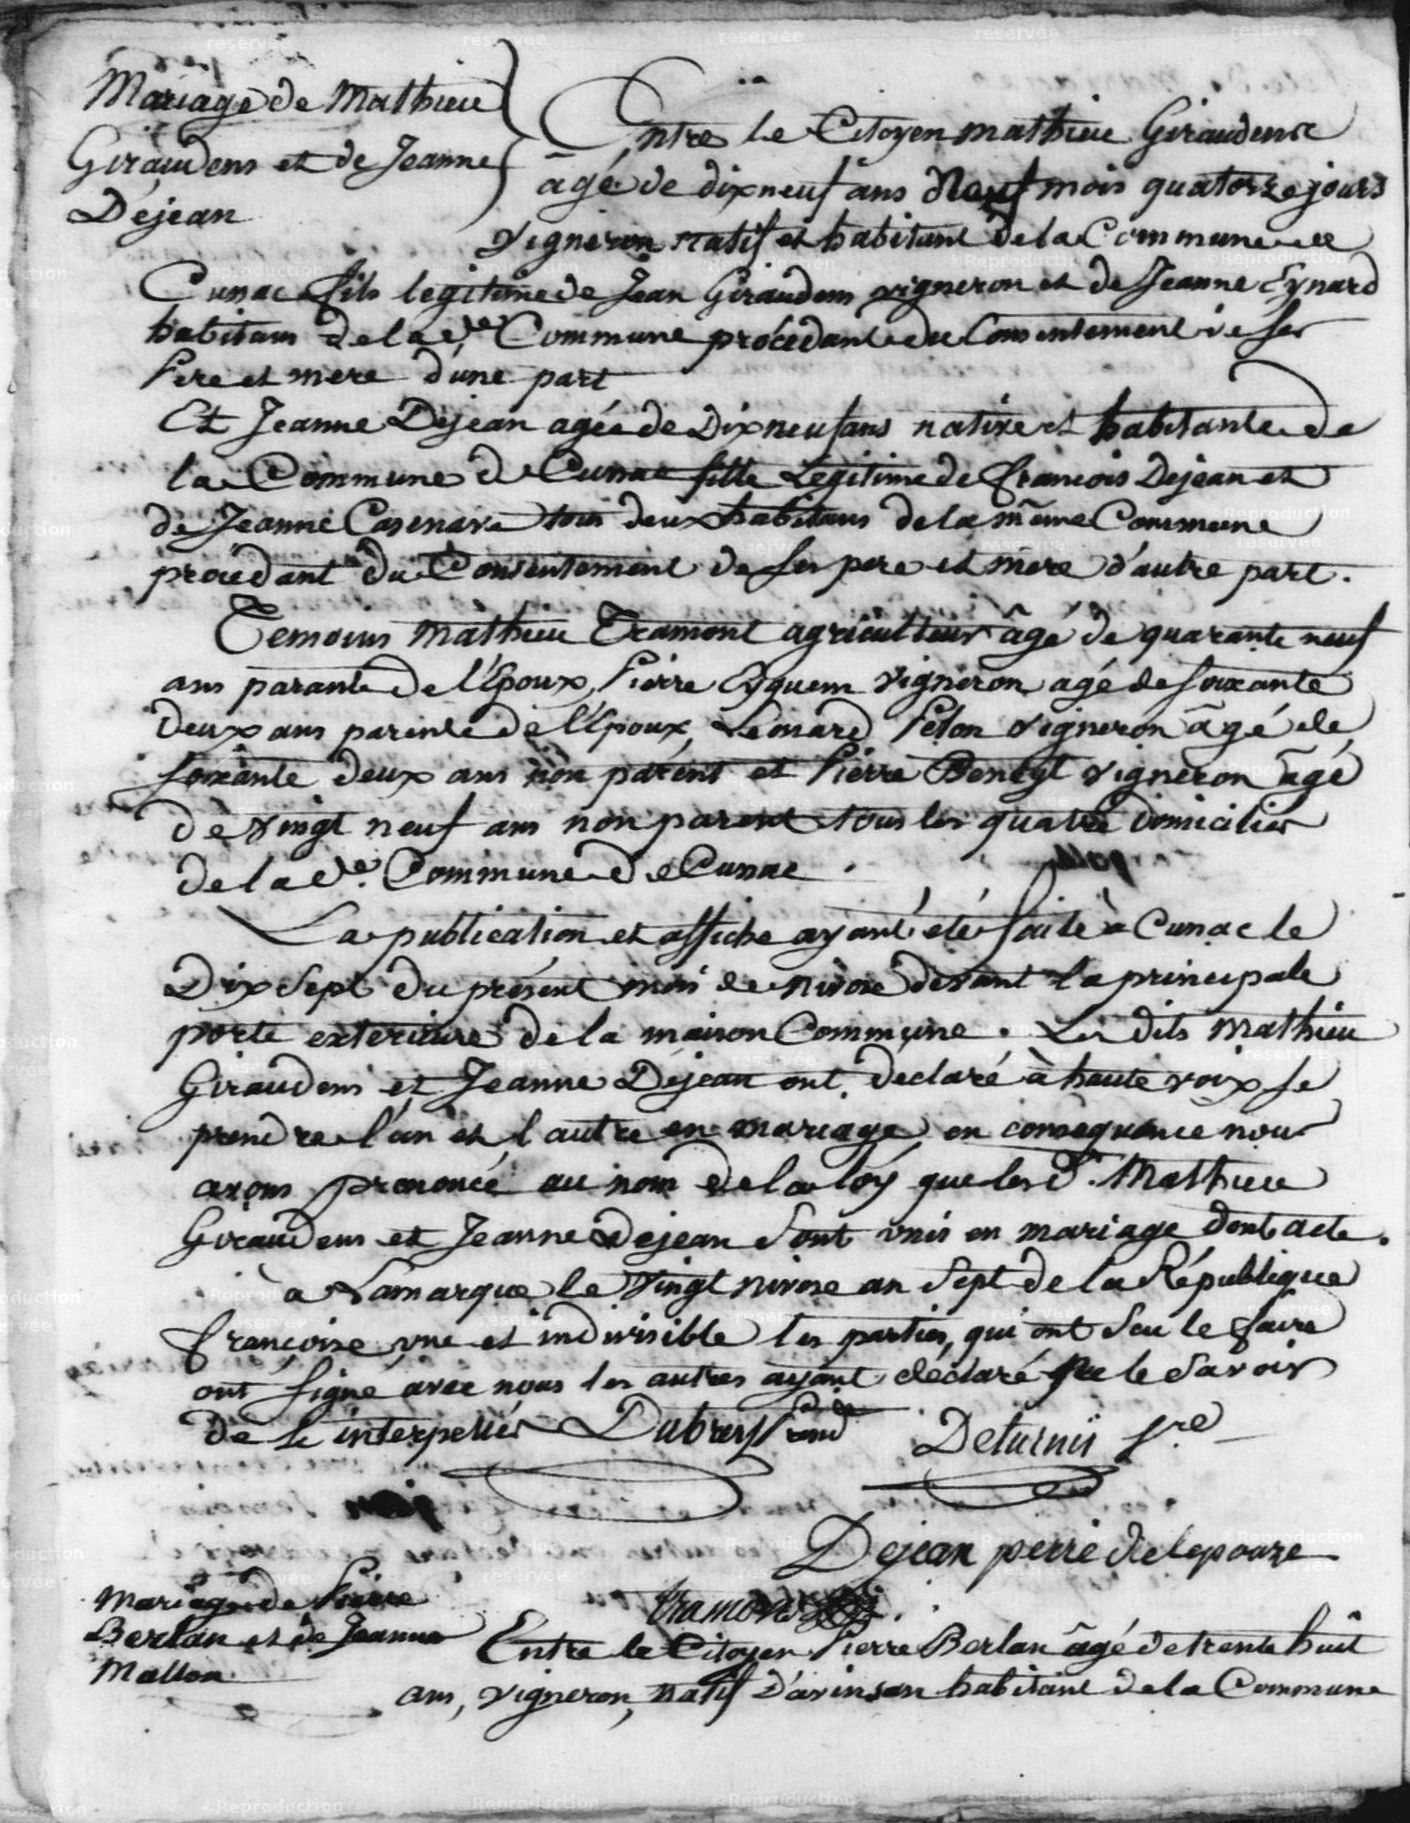 Mariage de Mathieu
Giraudens et de Jeanne
Dejean
Entre le Citoyen mathieu Giraudens
âgé de dix neuf ans neuf mois quatorze jours
vigneron natif et habitant de la Commune de
Cunac fils legitime de Jean Giraudens vigneron et de Jeanne Eynard
habitans de la de Commune procédant du Consentement de ses
Pere et mere d'une part
Et Jeanne Dejean agée de Dix neuf ans native et habitante de
la Commune de Cunac fille Legitime de francois Dejean et
de Jeanne Casenave tous deux habitans de la même Commune
procédant du Consentement de ses pere et mere d'autre part.
Temoins Mathieu Tramont agriculteur âgé de quarante neuf
ans parant de l'Epoux, Pierre Eyquem vigneron agé de soixante
deux ans parent de l'Epoux, Léonard Pelon vigneron âgé de
soixante deux ans non parent et Pierre Benegt vigneron âgé
de vingt neuf ans non parent tous les quatre domiciliés
de la de. Commune de Cunac.
La publication et affiche ayant été faite à Cunac le
Dix Sept du présent mois de nivose devant la principale
porte exterieure de la maison Commune. Les dits Mathieu
Giraudens et Jeanne Dejean ont declaré à haute voix se
prendre l'un et l'autre en mariage, en conséquence nous
avons prononcé au nom de la loy que les d. Mathieu
Giraudens et Jeanne Dejean Sont unis en mariage dont acte.
à Lamarque le Vingt nivose an Sept de la République
françoise une et indivisible les parties, qui ont Seu le faire
ont signé avec nous les autres ayant déclaré ne le Savoir
de ce interpellés Dubrey Deturnis
Dejean perre de lepouze
tramont
Mariage de Pierre
Berlan et de Jeanne
Mallon
Entre le Citoyen Pierre Berlan âgé de trente huit
ans, vigneron, natif d'avinsan habitant de la Commune